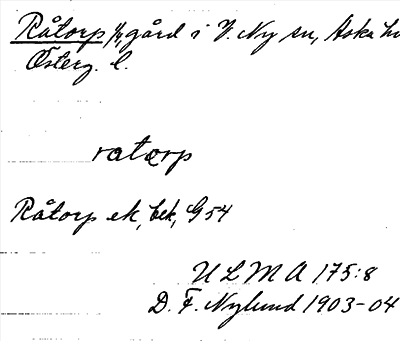 Råtorp 1/1 gård i V. Ny sn, Aska
Österg. l.
ratorp
Råtorp ek, bek, G 54
ULMA 175:8
D. F. Nylund 1903-04